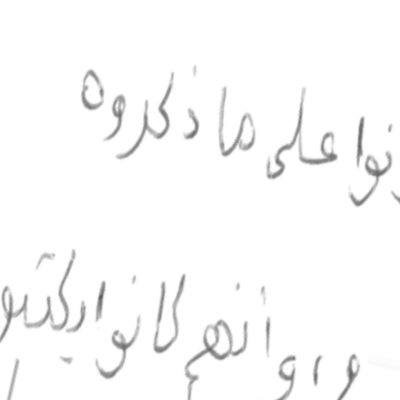 نوا على ما ذكروه
وأنهم كانوا يكتبو